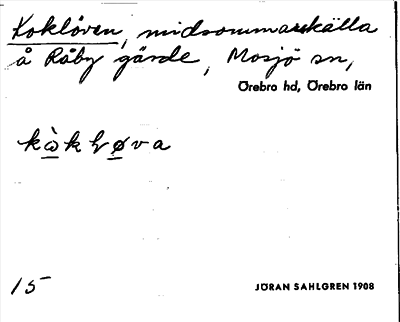 Kokløven, midsommarskälla
å Råby gärde, Mosjö sn,
Örebro hd, Örebro län
15
JÖRAN SAHLGREN 1908